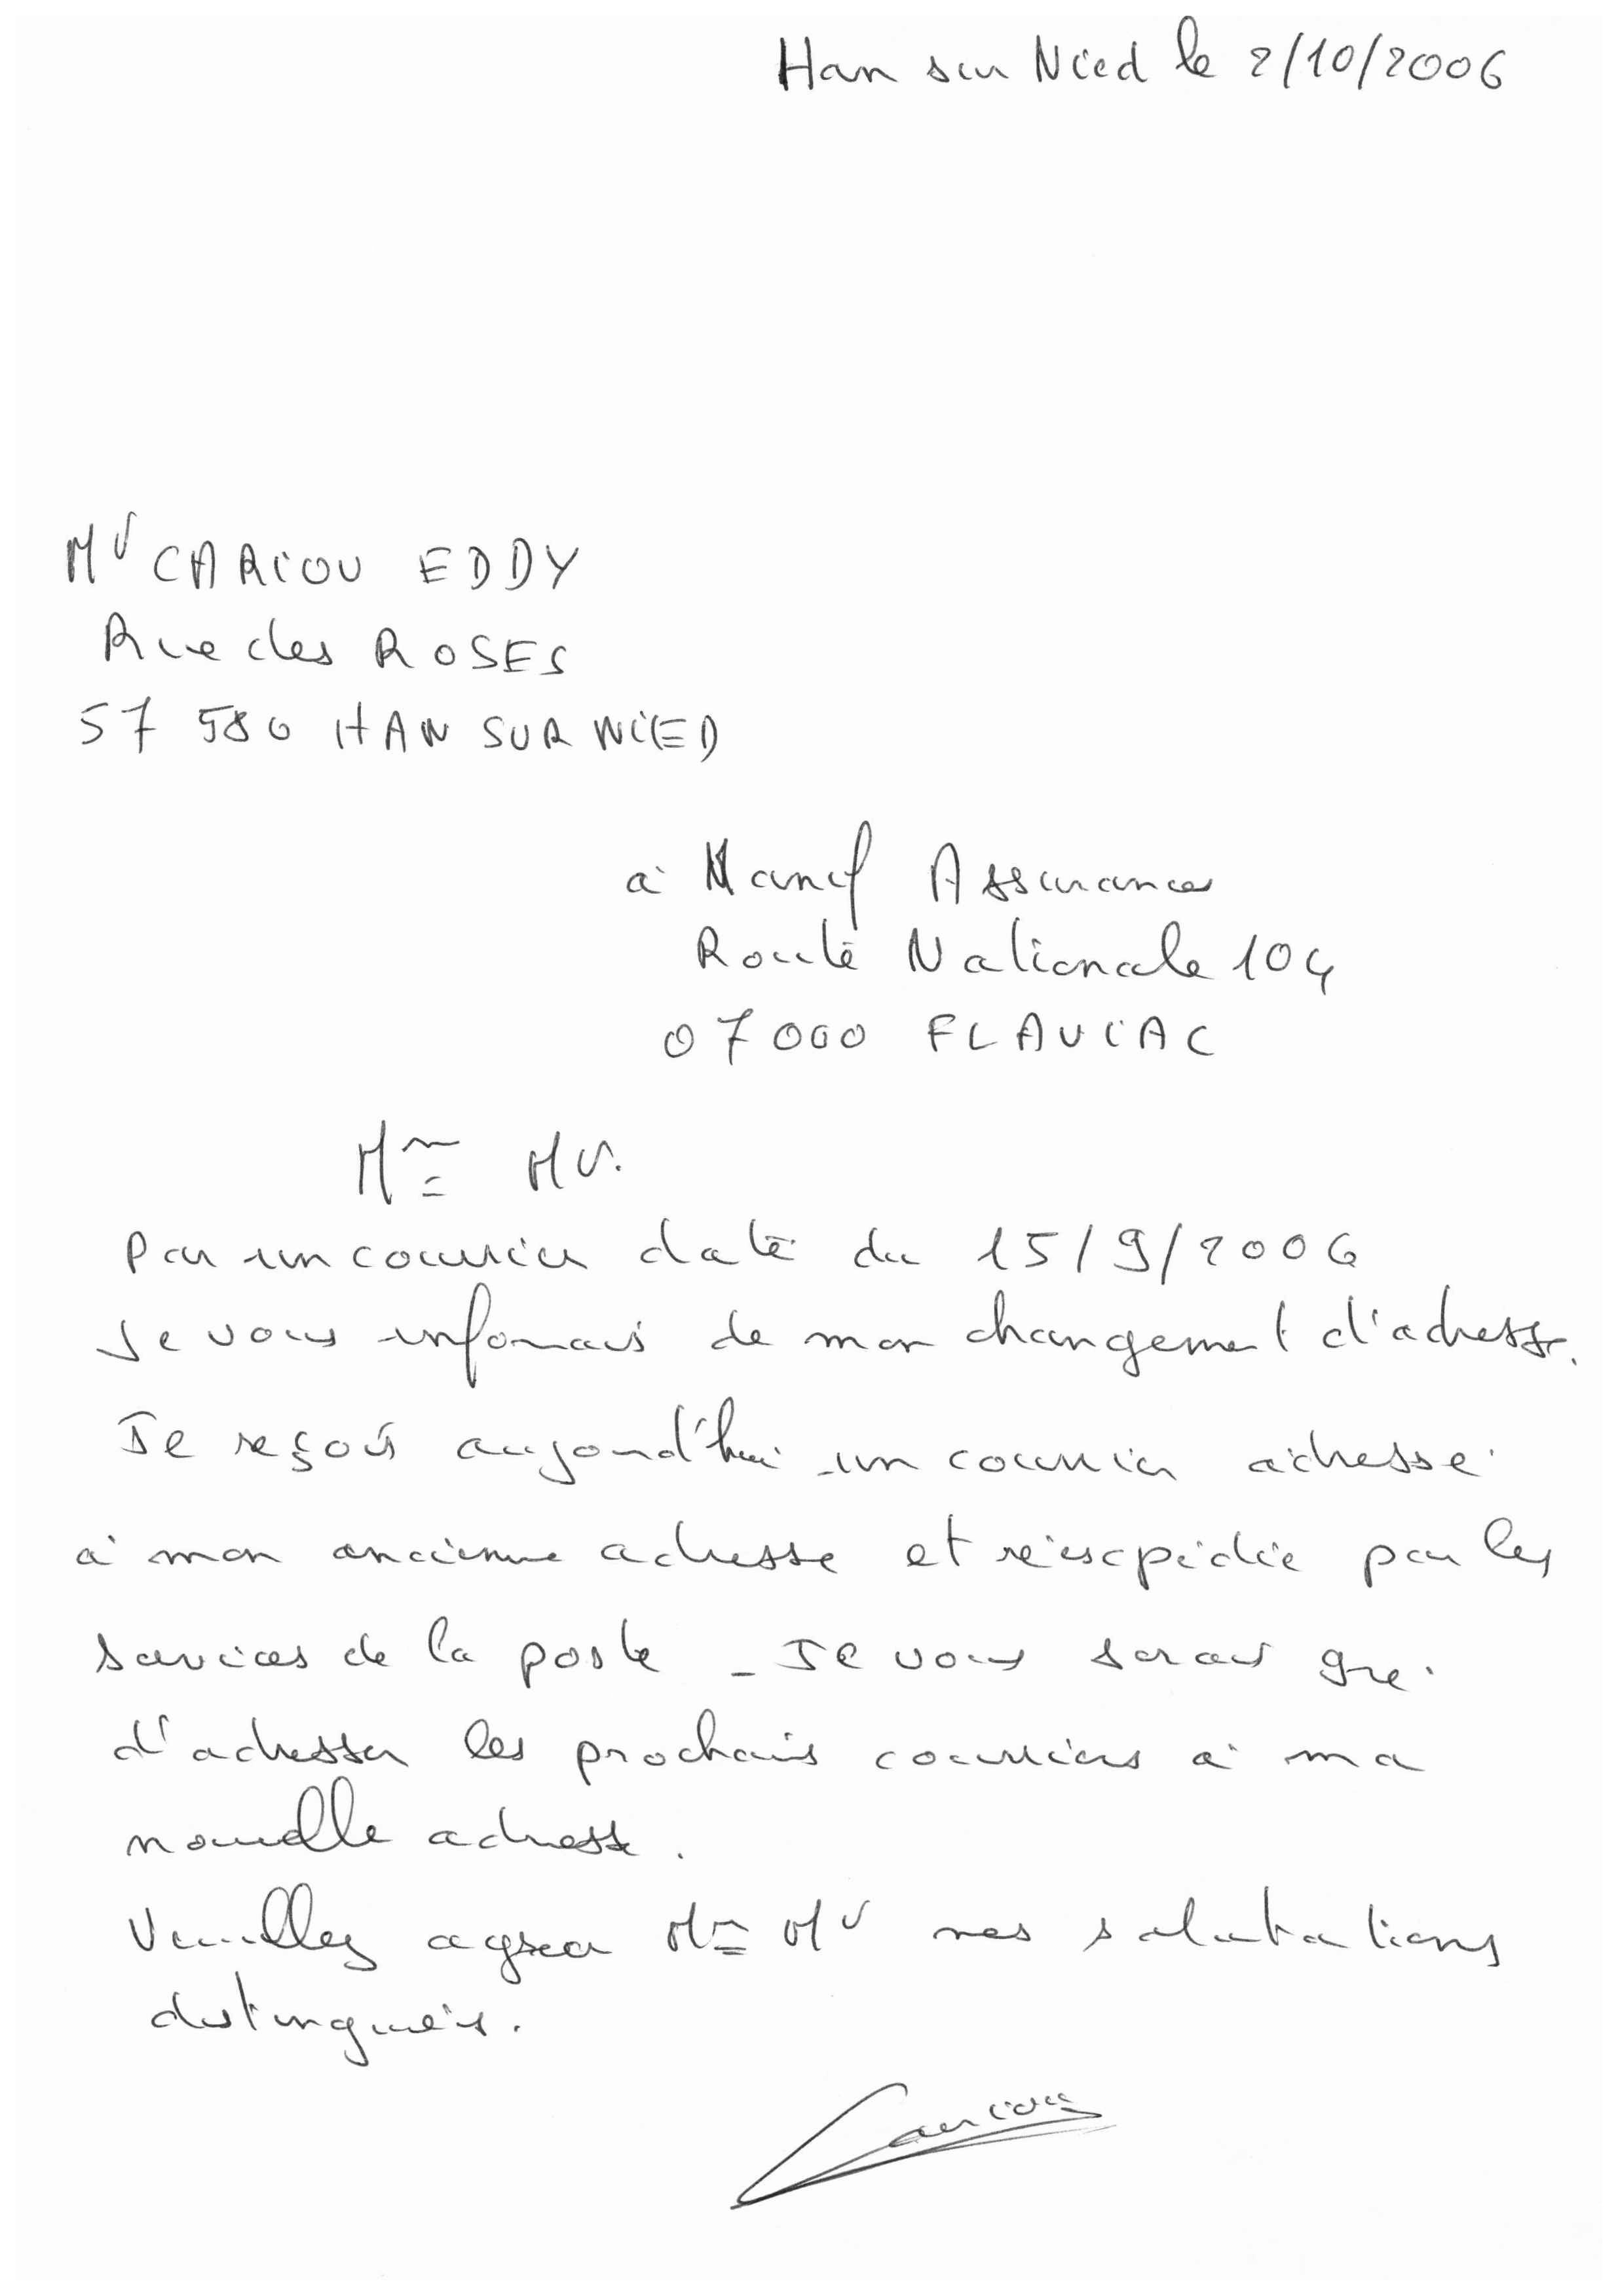 Han sur Nied le 2/10/2006
Mr CARIOU EDDY
Rue des ROSES
57 580 HAN SUR NIED
à Manif Assurances
Route Nationale 104
07000 FLAVIAC
Mme Mr.
Par un courrier daté du 15/9/2006
Je vous informais de mon changement d'adresse.
Je reçois aujourd'hui un courrier adressé
à mon ancienne adresse et réexpédiée par les
services de la poste - Je vous serais gré
d'adresser les prochains courriers à ma
nouvelle adresse.
Veuillez agréer Mme Mr mes salutations
distinguées.
Cariou